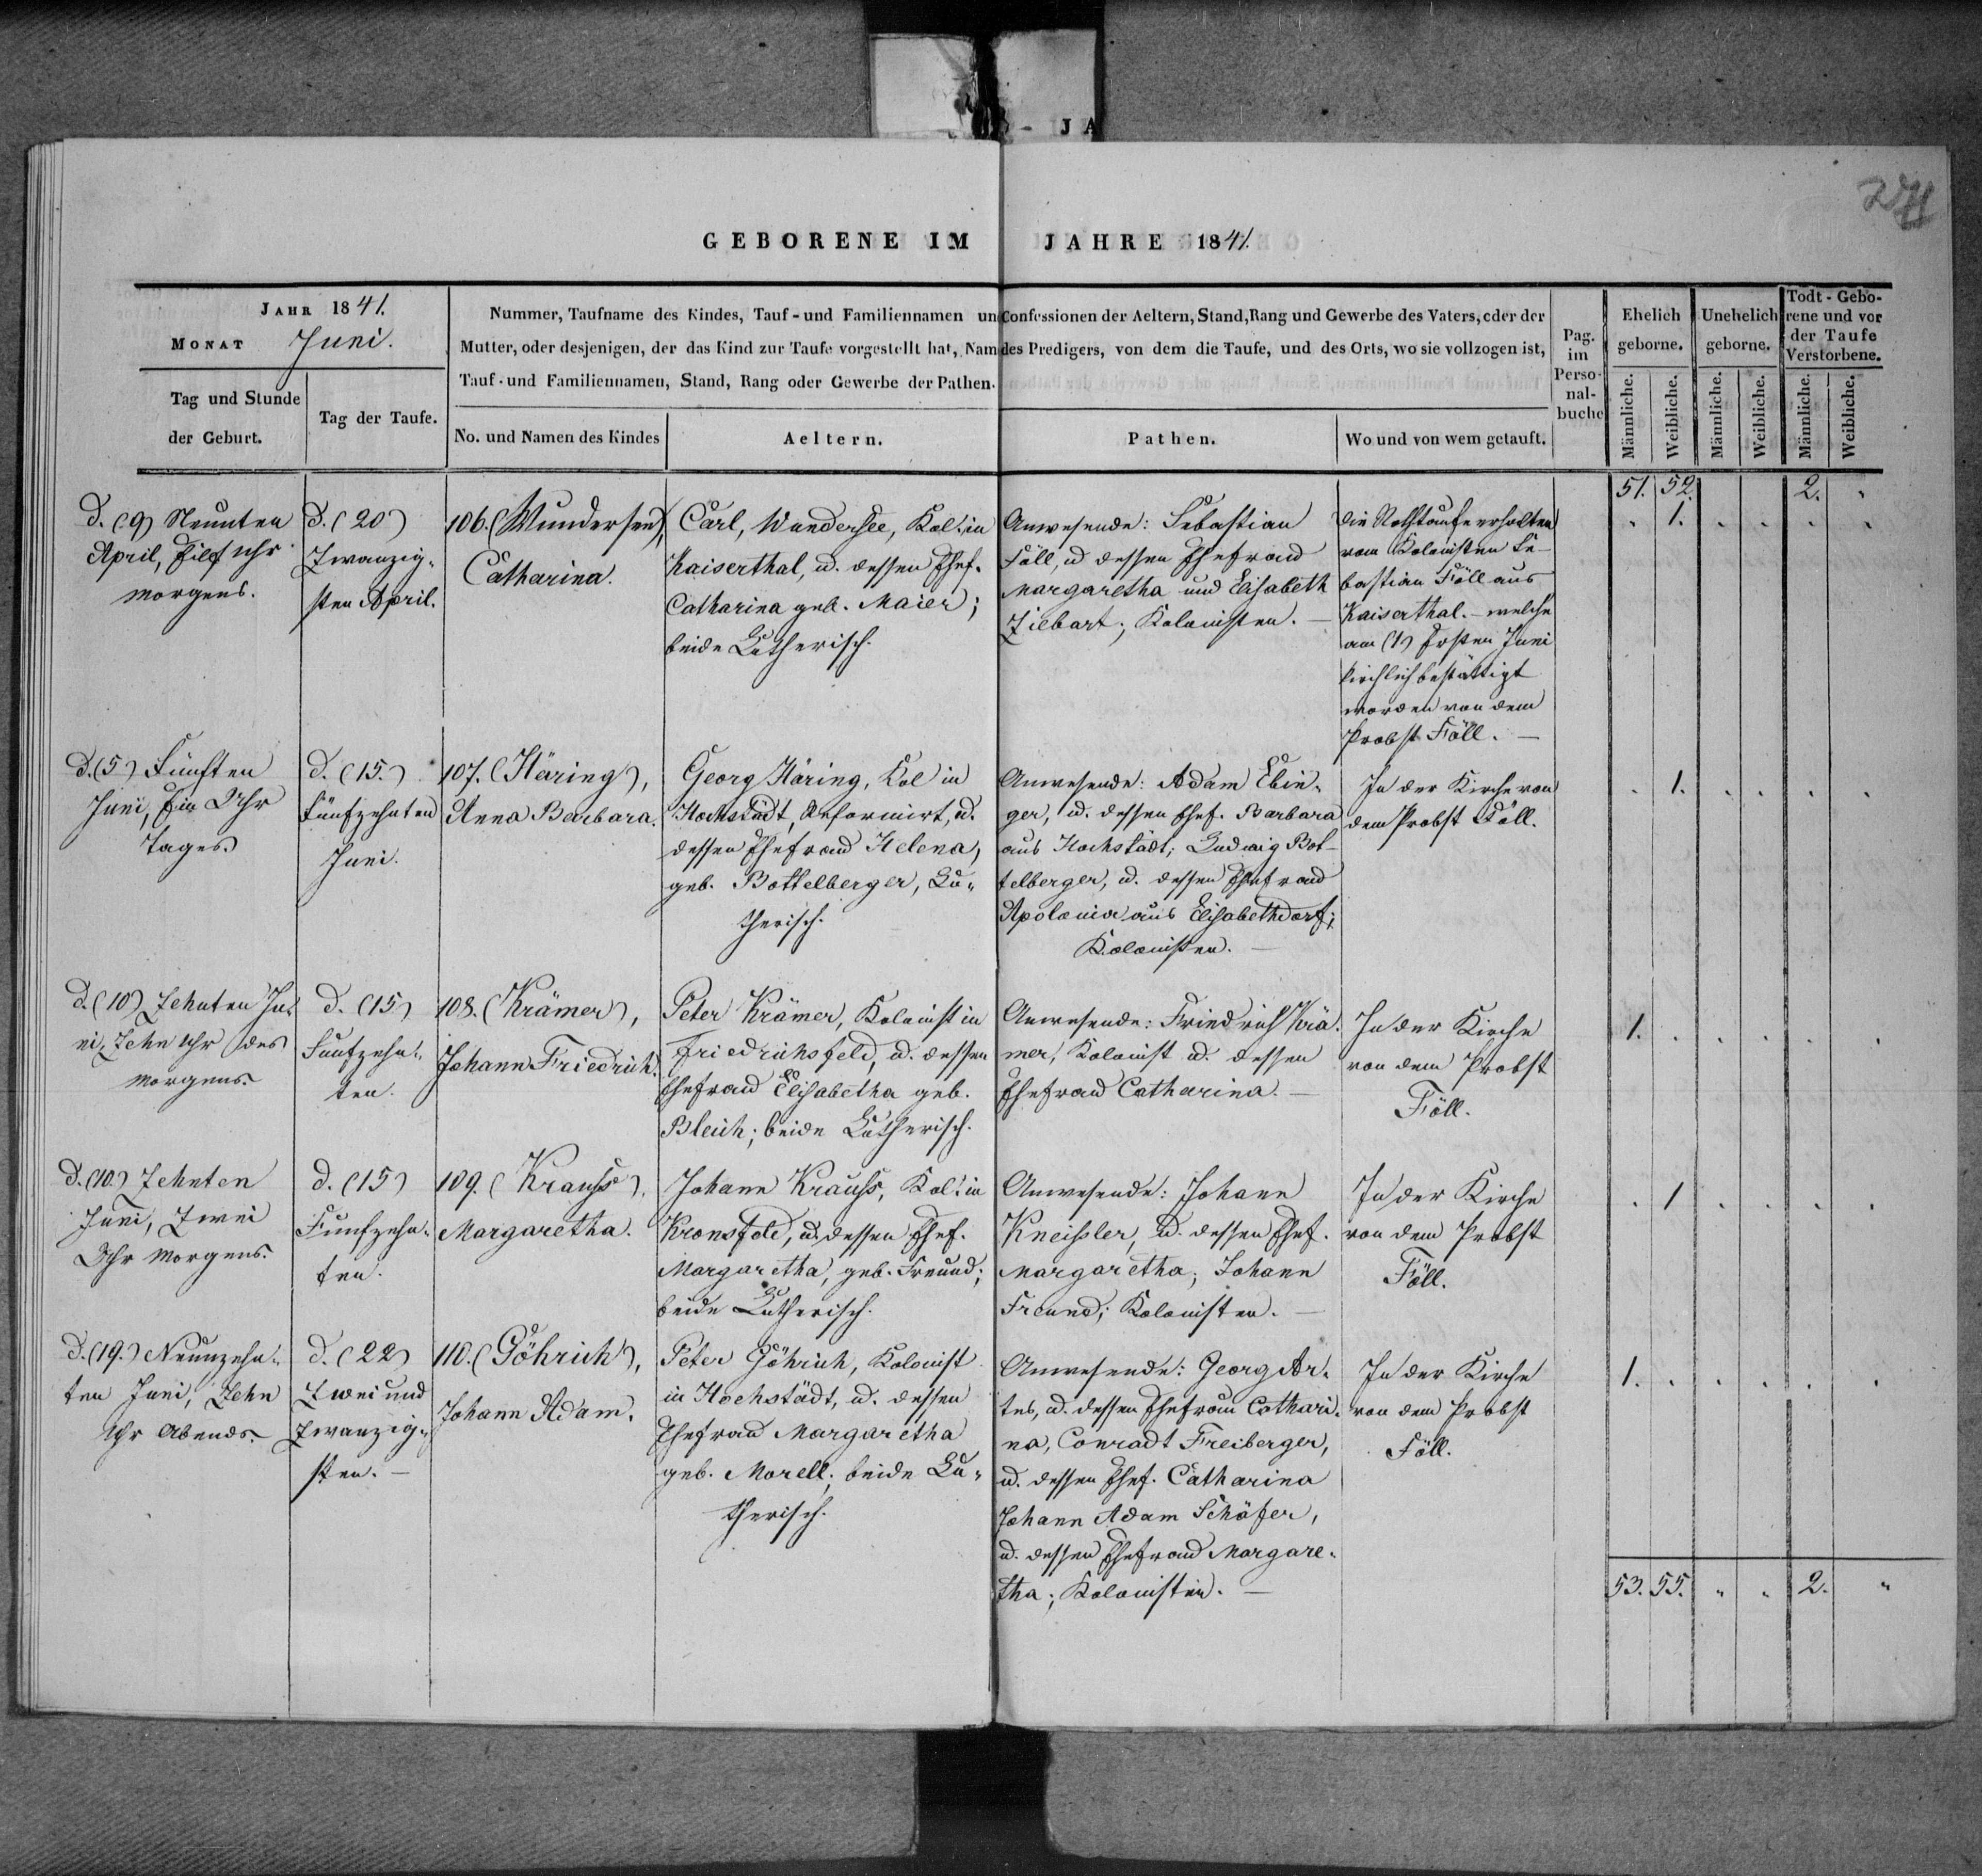 J A
271
GEBORENE IM JAHRE 1841.
JAHR 1841.
MONAT Juni.
Tag und Stunde
der Geburt.
Tag der Taufe.
Nummer, Taufname des Kindes, Tauf- und Familiennamen und Confessionen der Aeltern, Stand, Rang und Gewerbe des Vaters, oder der
Mutter, oder desjenigen, der das Kind zur Taufe vorgestellt hat, Nam des Predigers, von dem die Taufe, und des Orts, wo sie vollzogen ist,
Tauf- und Familiennamen, Stand, Rang oder Gewerbe der Pathen.
No. und Namen des Kindes
Aeltern.
Pathen.
Wo und von wem getauft.
Pag.
im
Perso-
nal-
buche
Ehelich
geborne.
Unehelich
geborne.
Todt-Gebo-
rene und vor
der Taufe
Verstorbene.
Männliche.
Weibliche.
Männliche.
Weibliche.
Männliche.
Weibliche.
51. 52. 2. "
d. (9) Neunten
April, Eilf Uhr
morgens.
d. (20)
Zwanzig-
sten April.
106. (Wundersee),
Catharina.
Carl, Wundersee, Kol. in
Kaiserthal, u. dessen Ehef.
Catharina geb. Maier;
beide Lutherisch.
Anwesende: Sebastian
Föll, u dessen Ehefrau
Margaretha und Elisabeth
Ziebart; Kolonisten. —
Die Nothtaufe erhalten
vom Kolonisten Se-
bastian Föll aus
Kaiserthal. - welche
am (1) Ersten Juni
kirchlich bestättigt
worden von dem
Probst Föll. —
. 1. . . . .
d. (5) Fünften
Juni, Ein Uhr
Tages.
d. (15.)
Fünfzehnten
Juni.
107. (Häring),
Anna Barbara.
Georg Häring, Kol in
Hochstädt, Reformirt, u.
dessen Ehefrau Helena,
geb. Bottelberger, Lu-
therisch.
Anwesende: Adam Ebin-
ger, u. dessen Ehef. Barbara
aus Hochstädt; Ludwig Bot-
telberger, u. dessen Ehefrau
Apolonia aus Elisabethdorf;
Kolonisten. —
In der Kirche von
dem Probst Föll.
. 1. . . . .
d. (10) Zehnten Ju-
ni, Zehn Uhr des
morgens.
d. (15)
Funfzehn-
ten.
108. (Krämer),
Johann Friedrich.
Peter Krämer, Kolonist in
Friedrichsfeld, u. dessen
Ehefrau Elisabetha geb.
Bleich; beide Lutherisch.
Anwesende: Friedrich Krä-
mer, Kolonist u. dessen
Ehefrau Catharina. —
In der Kirche
von dem Probst
Föll.
1. . . . . .
d. (10.) Zehnten
Juni, Zwei
Uhr Morgens.
d. (15)
Funfzehn-
ten.
109. (Krauss),
Margaretha.
Johann Krauss, Kol. in
Kronsfeld, u. dessen Ehef.
Margaretha, geb. Freund;
beide Lutherisch.
Anwesende: Johann
Kneissler, u. dessen Ehef.
Margaretha; Johann
Freund; Kolonisten. —
In der Kirche
von dem Probst
Föll.
. 1 . . . .
d. (19.) Neunzehn-
ten Juni, Zehn
Uhr Abends.
d. (22)
Zwei und
Zwanzig-
sten. —
110. (Göhrich),
Johann Adam.
Peter Göhrich, Kolonist
in Hochstädt, u. dessen
Ehefrau Margaretha
geb. Morell; beide Lu-
therisch.
Anwesende: Georg Ar-
tes, u. dessen Ehefrau Cathari-
na, Conradt Freiberger,
u. dessen Ehef. Catharina
Johann Adam Schäfer,
u. dessen Ehefrau Margare-
tha; Kolonisten. —
In der Kirche
von dem Probst
Föll.
1. . . . . .
53. 55. " " 2. "